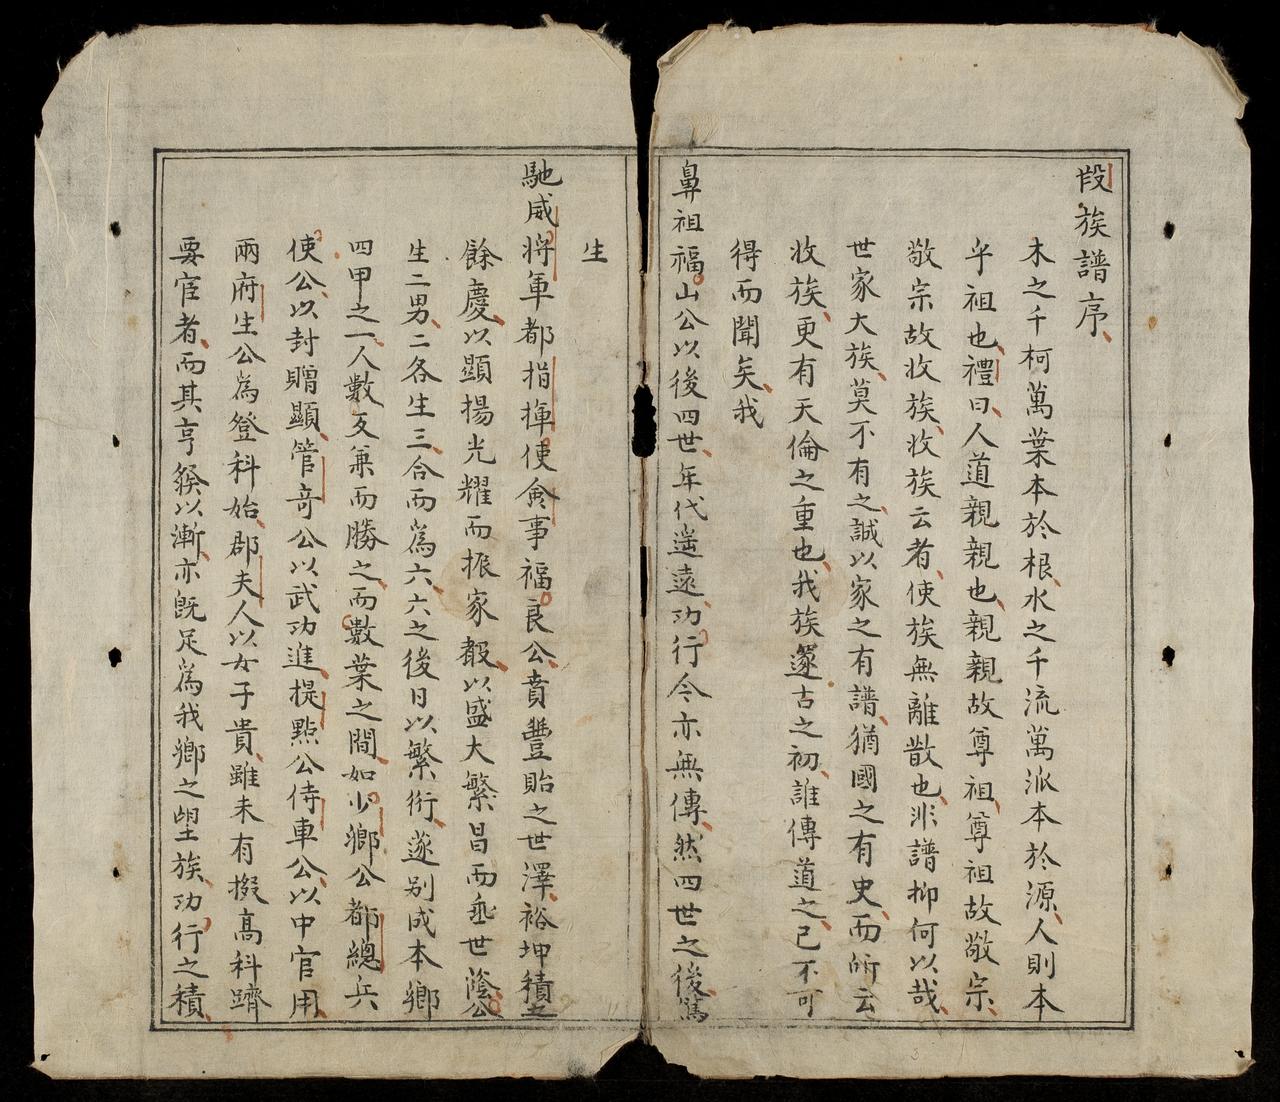 段族譜序
木之千柯萬葉本於根水之千流萬派本於源人則本
乎祖也禮曰人道親親也親親故尊祖尊祖故敬宗
敬宗故收族收族云者使族無離散也非譜抑何以哉
世家大族莫不有之誠以家之有譜猶國之有史而所云
收族更有天倫之重也我族邃古之初誰傳道之已不可
得而聞矣我
鼻祖福山公以後四世年代遥遠功行今亦無傳然四世之後篤
生
馳威將軍都指揮使僉事福良公賁豐貽之世澤裕坤積之
餘慶以顯揚光耀而振家轂以盛大繁昌而垂世蔭公
生二男二各生三合而爲六六之後日以繁衍遂别成本鄉
四甲之一人數支兼而勝之而數葉之間如少鄉公都總兵
使公以封贈顯管竒公以武功進提點公侍車公以中官用
兩府生公爲登科始郡夫人以女子貴雖未有掇高科躋
要宦者而其亨發以漸亦既足爲我鄉之望族功行之積